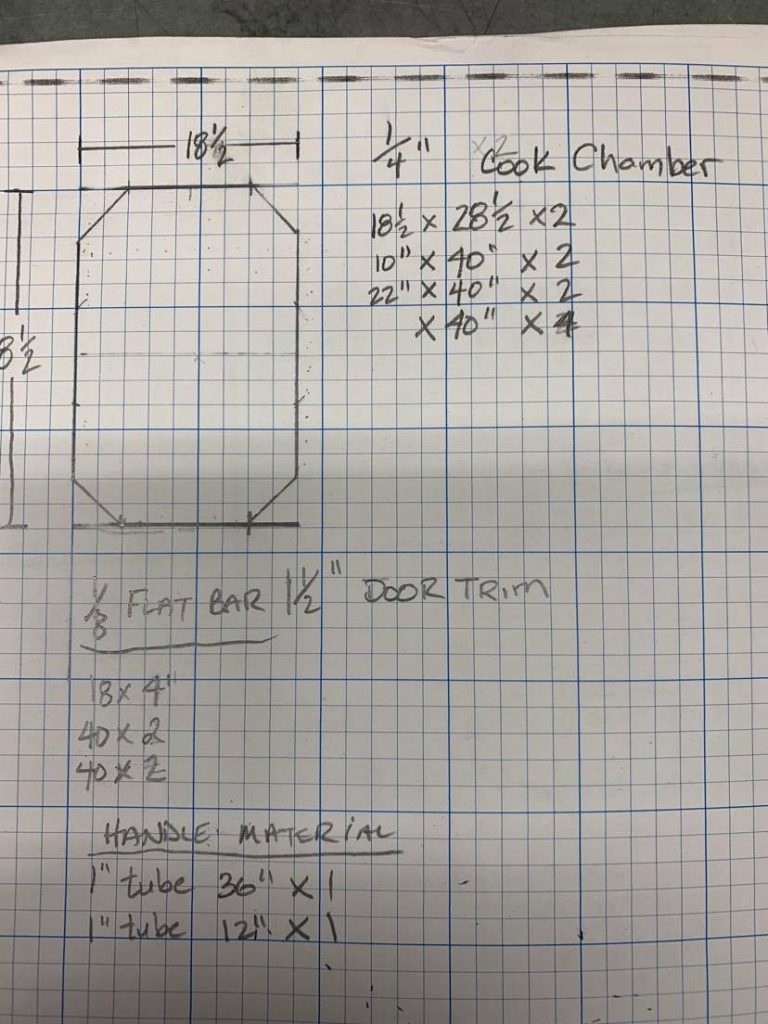 18 1/2
1/4" x2 Cook Chamber
18 1/2 x 28 1/2 x 2
10" x 40" x 2
22" x 40" x 2
x 40" x 4
8 1/2
1/8 FLAT BAR 1 1/2" DOOR TRIM
18 x 4"
40 x 2
40 x 2
HANDLE MATERIAL
1" tube 36" x 1
1" tube 12" x 1